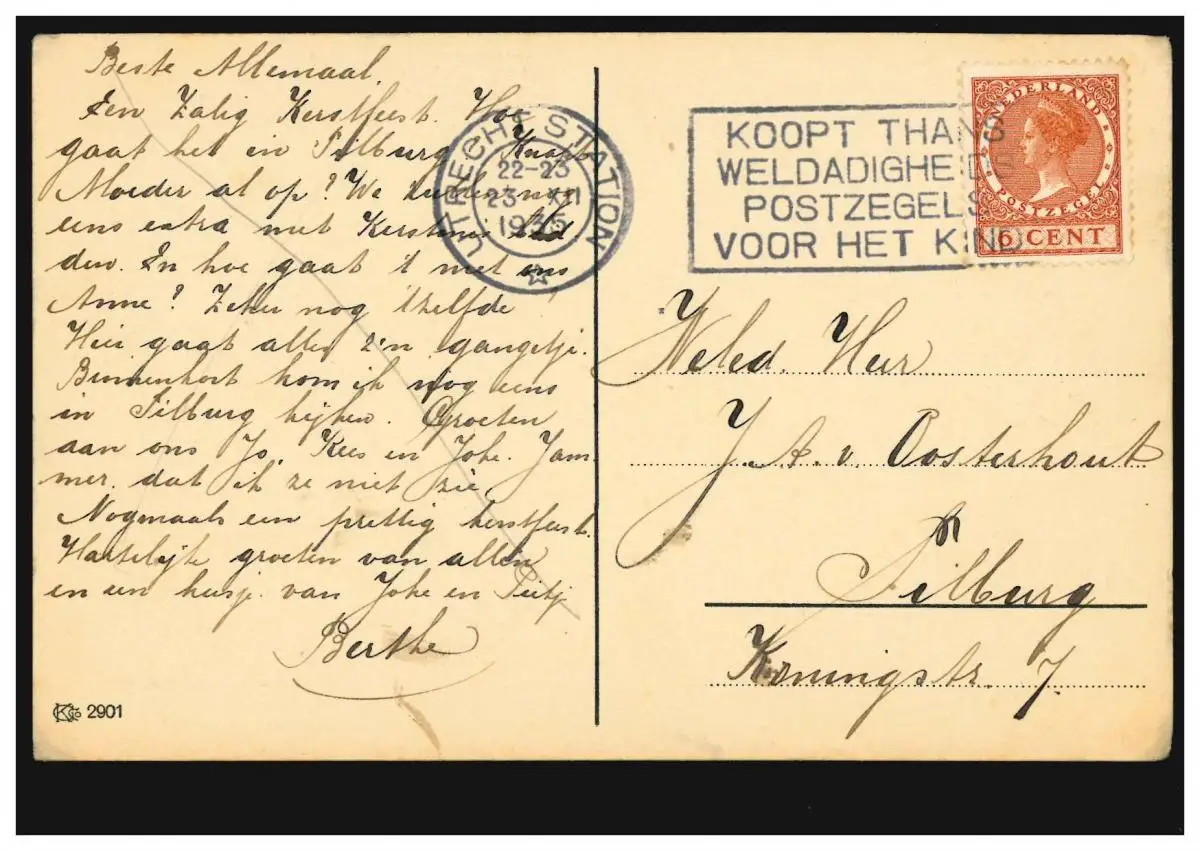 Beste Allemaal.
Een Zalig Kerstfeest. Hoe
gaat het in Tilburg Knapt
Moeder al op? We zullen nog
eens extra met Kerstmis
den. En hoe gaat 't met ons
Anne? Zeker nog 'tzelfde!
Hier gaat alles z'n gangetje.
Binnenkort kom ik nog eens
in Tilburg kijken. Groeten
aan ons Jo, Kees en Johe. Jam-
mer, dat ik ze niet zie,
Nogmaals een prettig kerstfeest.
Hartelijke groeten van allen
en een kusje van Johe en Pietj
Berthe
KCo 2901
UTRECHT STATION
22-23
23 XII
1935
KOOPT THANS
WELDADIGHEIDS
POSTZEGELS
VOOR HET KIND
NEDERLAND
POSTZEGEL
6 CENT
Weled. Heer
J. A. v. Oosterhout
Tilburg
Koningstr. 7.